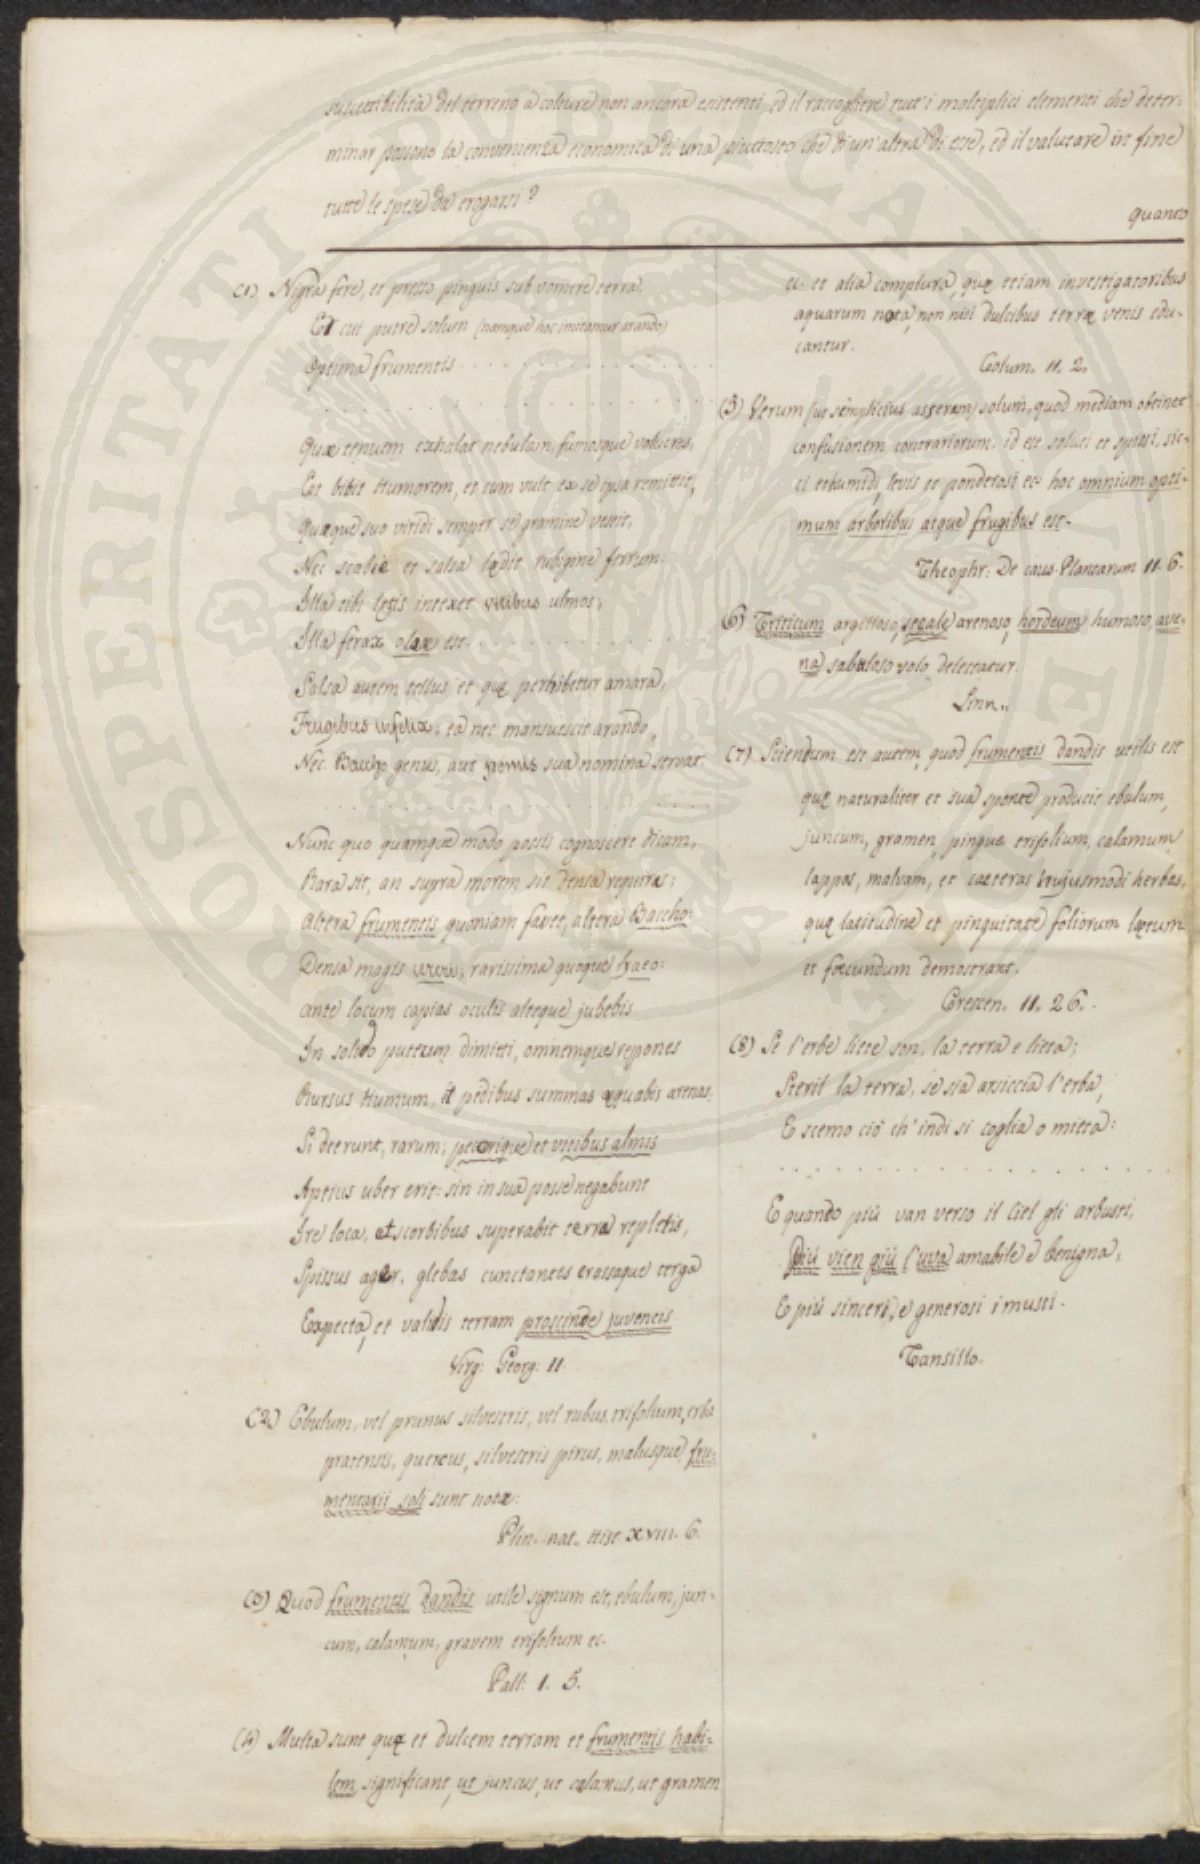 suscettibilità del terreno a colture non ancora esistenti, ed il raccogliere tutt'i moltiplici elementi che deter=
minar possono la convenienza economica di una piuttosto che di un'altra di esse, ed il valutare in fine
tutte le spese da erogarsi?
quanto
(1) Nigra fere, et presso pinguis sub vomere terra,
Et cui putre solum (namque hoc imitamur arando)
Optima frumentis . . . . . . . . .
. . . . . . . . . . . .
Quæ tenuem exhalat nebulam, fumosque volucres,
Et bibit humorem, et cum vult ex se ipsa remittit,
Quæque suo viridi semper se gramine vestit,
Nec scabie et salsa lædit rubigine ferrum;
Illa tibi lætis intexet vitibus ulmos;
Illa ferax oleæ est . . . . . . . .
Salsa autem tellus, et quæ perhibetur amara,
Frugibus infelix, ea nec mansuescit arando,
Nec Baccho genus, aut pomis sua nomina servat.
. . . . . . . . . . . .
Nunc quo quamque modo possis cognoscere dicam,
Rara sit, an supra morem sit densa requiras;
Altera frumentis quoniam favet, altera Baccho:
Densa magis , rarissima quoque lyæo:
Ante locum capias oculis alteque jubebis
In solido puteum dimitti, omnemque repones
Rursus humum, et pedibus summas æquabis arenas.
Si deerunt, rarum; pecorique et vitibus almis
Aptius uber erit: sin in sua posse negabunt
Ire loca, et scorbibus superabit terra repletis,
Spissus ager, glebas cunctantes crassaque terga
Expecta, et validis terram proscinde juvencis
Virg: Georg: II
(2) Ebulum, vel prunus silvestris, vel rubus, trifolium, erba
pratensis, quercus, silvestris pirus, malusque fru=
mentarii soli sunt notæ:
Plin. nat. hist. XVIII. 6.
(3) Quod frumentis dandis utile signum est, ebulum, jun-
cum, calamum, gravem trifolium ec.
Pall: 1. 5.
(4) Multa sunt quæ et dulcem terram et frumentis habi-
lem significant, ut juncus, ut calamus, ut gramen
ec. et alia complura, quæ etiam investigatoribus
aquarum nota, non nisi dulcibus terræ venis edu-
cantur.
Colum. II. 2.
(5) Verum (ut simplicius asseram) solum, quod mediam obtinet
confusionem contrariorum. id est soluti et spissi, sic-
ci et humidi, levis et ponderosi ec: hoc omnium opti-
mum arboribus atque frugibus est.
Theophr: De caus. Plantarum II. 6.
6) Triticum argilloso, secale arenoso, hordeum humoso, ave-
na sabuloso solo delectatur.
Linn..
(7) Sciendum est autem, quod frumentis dandis utilis est
quæ naturaliter et sua sponte producit ebulum,
juncum, gramen, pingue trifolium, calamum,
lappas, malvam, et cæteras hujusmodi herbas,
quæ latitudine et pinguitate foliorum lætum
et fæcundum demostrant.
Crescen. II. 26..
(8) Se l'erbe liete son, la terra e lieta;
Steril la terra, se sia arsiccia l'erba,
E scemo ciò ch'indi si coglia o mieta:
. . . . . . . . . . . .
E quando più van verso il Ciel gli arbusti,
Più vien più l'uva amabile e benigna,
E più sinceri, e generosi i musti.
Tansillo.
PROSPERITATI PUBLICAE